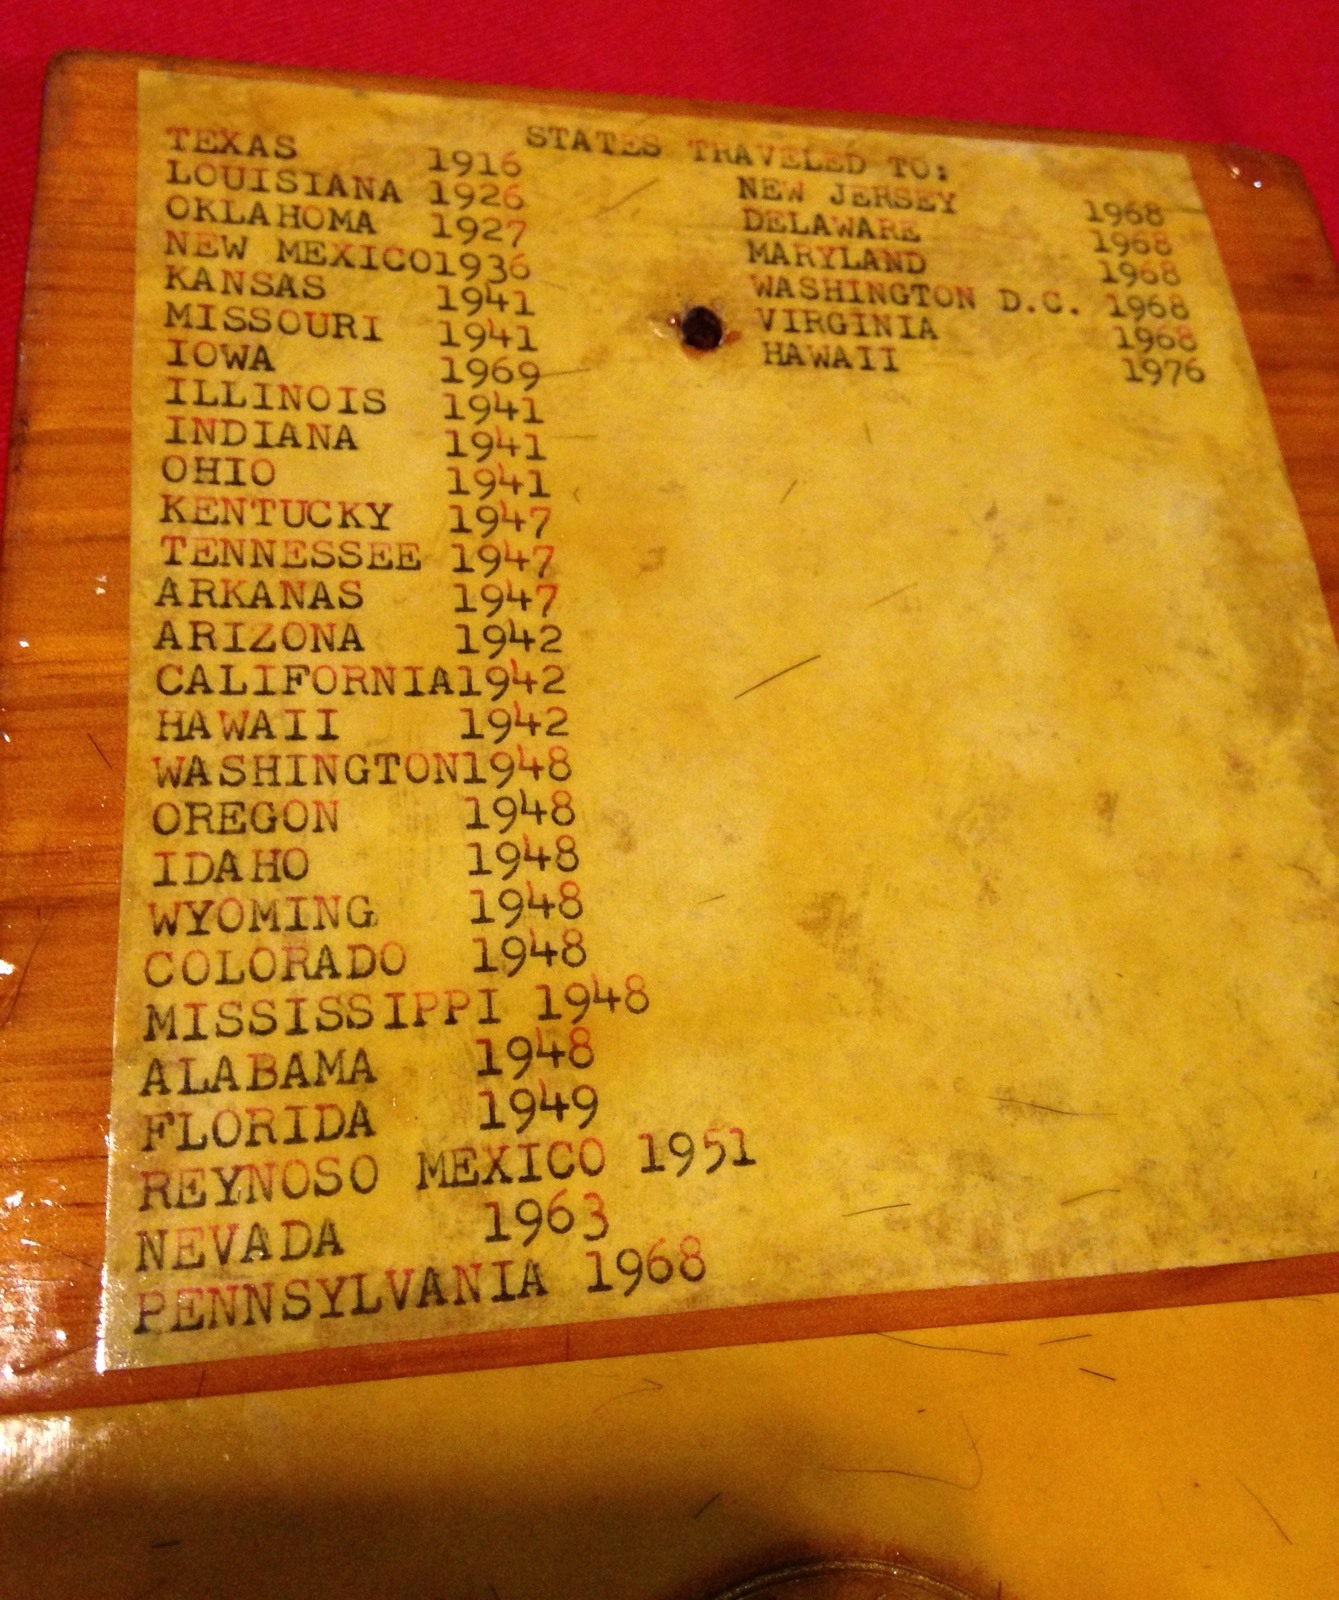 STATES TRAVELED TO:
TEXAS 1916
LOUISIANA 1926
OKLAHOMA 1927
NEW MEXICO1936
KANSAS 1941
MISSOURI 1941
IOWA 1969
ILLINOIS 1941
INDIANA 1941
OHIO 1941
KENTUCKY 1947
TENNESSEE 1947
ARKANAS 1947
ARIZONA 1942
CALIFORNIA1942
HAWAII 1942
WASHINGTON1948
OREGON 1948
IDAHO 1948
WYOMING 1948
COLORADO 1948
MISSISSIPPI 1948
ALABAMA 1948
FLORIDA 1949
REYNOSO MEXICO 1951
NEVADA 1963
PENNSYLVANIA 1968
NEW JERSEY 1968
DELAWARE 1968
MARYLAND 1968
WASHINGTON D.C. 1968
VIRGINIA 1968
HAWAII 1976